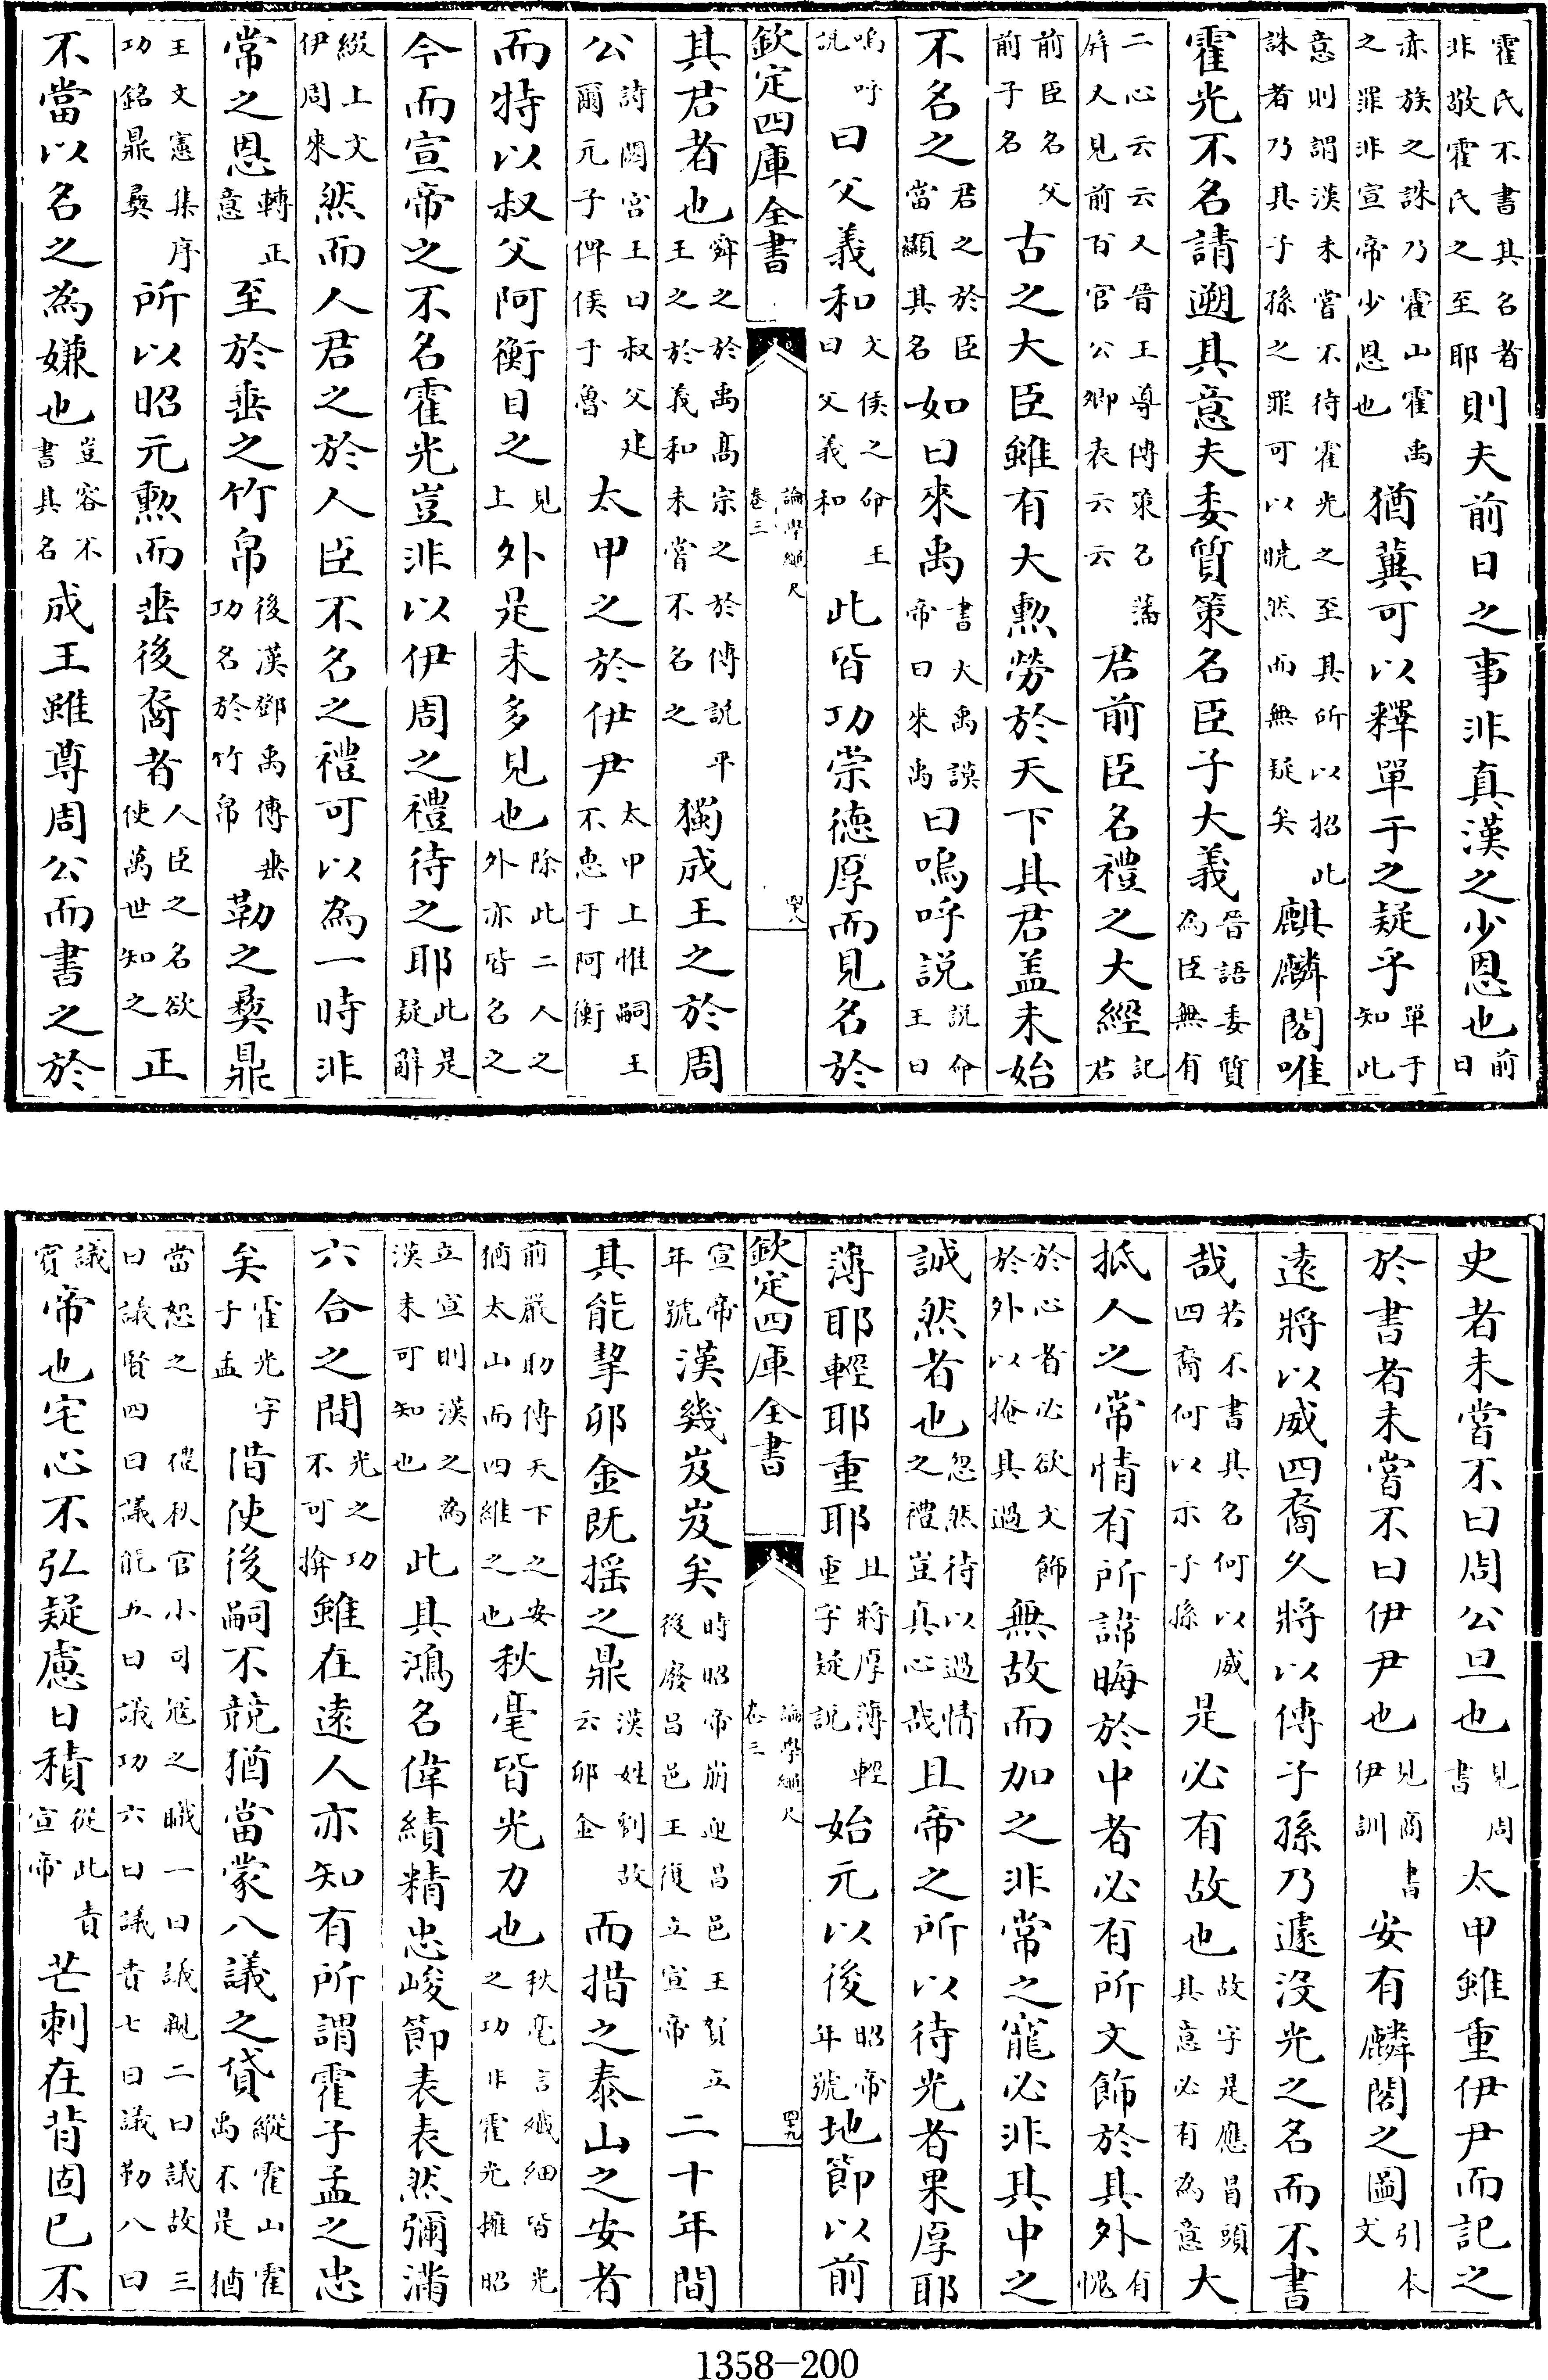 霍氏不書其名者非敬霍氏之至耶則夫前日之事非真漢之少恩也前日
赤族之誅乃霍山霍禹之罪非宣帝少恩也猶冀可以釋單于之疑乎單于知此
意則謂漢未嘗不待霍光之至其所以招此誅者乃其子孫之罪可以曉然而無疑矣麒麟閣唯
霍光不名請遡其意夫委質策名臣子大義晉語委質為臣無有
二心云云又晉王導傳策名藩屏又見前百官公卿表云云君前臣名禮之大經記君
前臣名父前子名古之大臣雖有大勲勞於天下其君盖未始
不名之君之於臣當顯其名如曰來禹書大禹謨帝曰來禹曰嗚呼説説命王曰
嗚呼説曰父義和文侯之命王曰父義和此皆功崇德厚而見名於
欽定四庫全書 論學繩尺 卷三 四十八
其君者也舜之於禹髙宗之於傅説平王之於義和未嘗不名之獨成王之於周
公詩閟宫王曰叔父建爾元子俾侯于魯太甲之於伊尹太甲上惟嗣王不惠于阿衡
而特以叔父阿衡目之見上外是未多見也除此二人之外亦皆名之
今而宣帝之不名霍光豈非以伊周之禮待之耶此是疑辭
綴上文伊周來然而人君之於人臣不名之禮可以為一時非
常之恩轉正意至於垂之竹帛後漢鄧禹傳垂功名於竹帛勒之彛鼎
王文憲集序功銘鼎彛所以昭元勲而垂後裔者人臣之名欲使萬世知之正
不當以名之為嫌也豈容不書其名成王雖尊周公而書之於
史者未嘗不曰周公旦也見周書太甲雖重伊尹而記之
於書者未嘗不曰伊尹也見商書伊訓安有麟閣之圖引本文
遠將以威四裔久將以傳子孫乃遽沒光之名而不書
哉若不書其名何以威四裔何以示子孫是必有故也故字是應冒頭其意必有為意大
抵人之常情有所諦晦於中者必有所文飾於其外有愧
於心者必欲文飾於外以掩其過無故而加之非常之寵必非其中之
誠然者也忽然待以過情之禮豈真心哉且帝之所以待光者果厚耶
薄耶輕耶重耶且將厚薄輕重字疑説始元以後昭帝年號地節以前
欽定四庫全書 論學繩尺 卷三 四十九
宣帝年號漢幾岌岌矣時昭帝崩迎昌邑王賀立後廢昌邑王復立宣帝二十年間
其能挈卯金既揺之鼎漢姓劉故云卯金而措之泰山之安者
前嚴助傳天下之安猶太山而四維之也秋毫皆光力也秋毫言纎細皆光之功非霍光擁昭
立宣則漢之為漢未可知也此其鴻名偉績精忠峻節表表然彌滿
六合之間光之功不可揜雖在逺人亦知有所謂霍子孟之忠
矣霍光字子孟偕使後嗣不競猶當蒙八議之貸縱霍山霍禹不是猶
當恕之 催秋官小司冦之職一曰議親二曰議故三曰議賢四曰議能五曰議功六曰議貴七曰議勤八曰
議賓帝也宅心不弘疑慮日積從此責宣帝芒刺在背固已不
1358-200